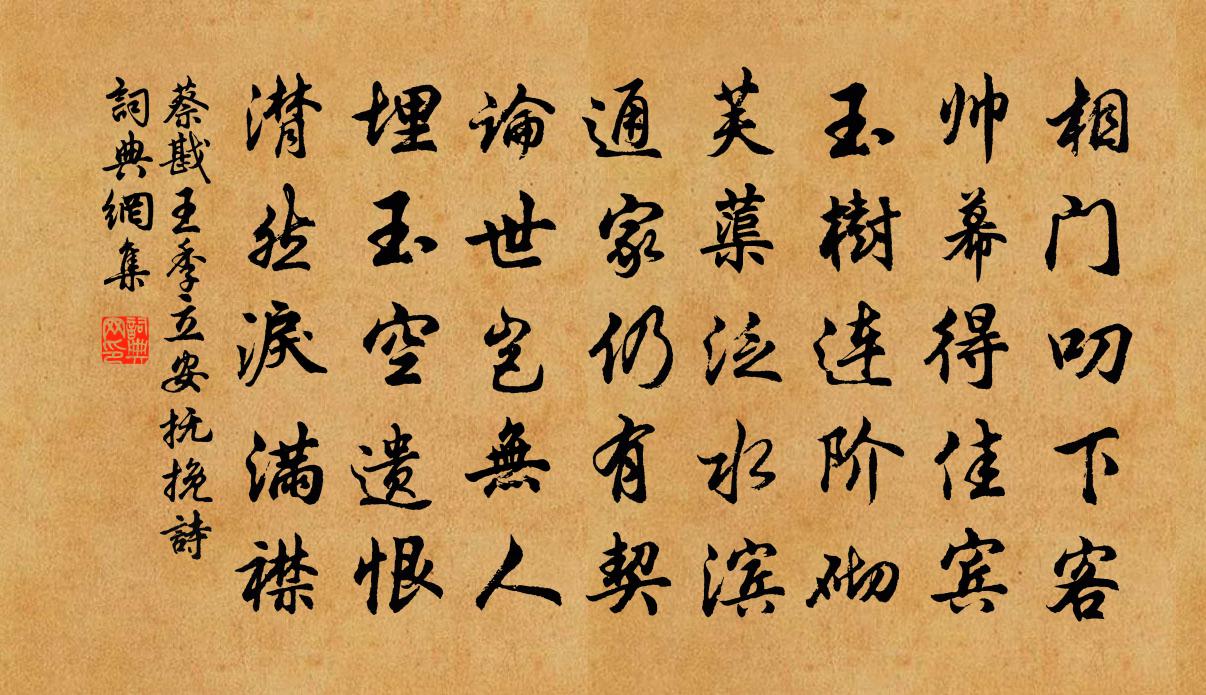 相门叨下客
帅幕得佳宾
玉樹连阶砌
芙蕖泛水滨
通家仍有契
論世岂無人
埋玉空遗恨
潸然淚满襟
蔡戡王季立安抚挽詩
詞典網集
詞典网印